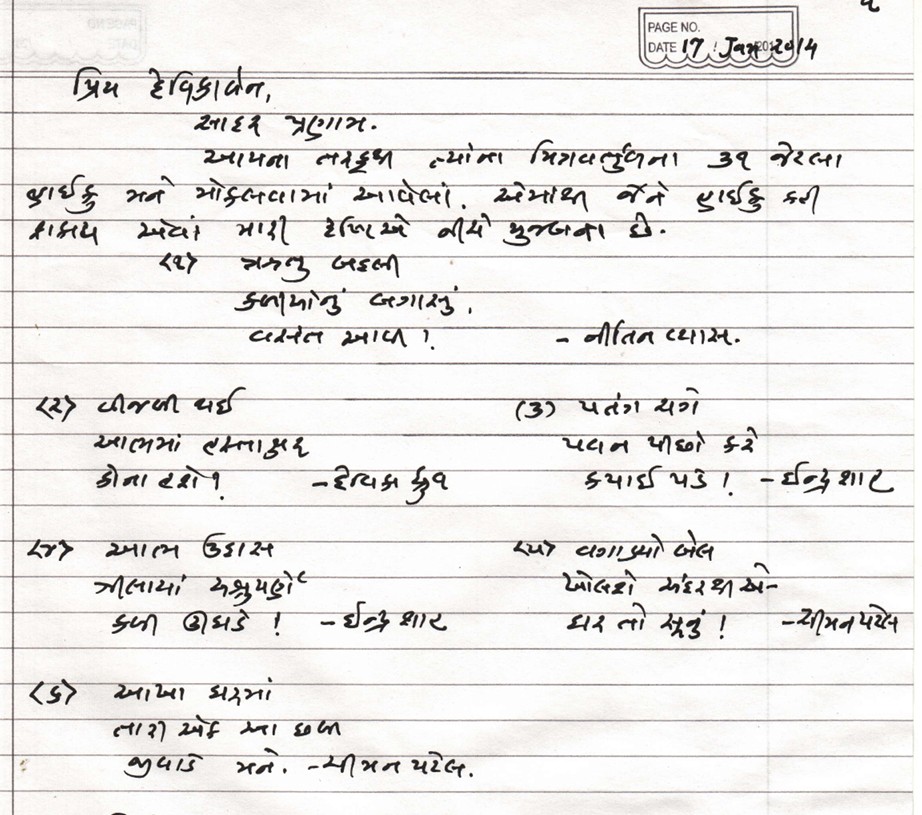 PAGE NO.
DATE 17 Jan 2014
પ્રિય દેવિકાબેન,
સાદર પ્રણામ.
આપના તરફથી ત્યાંના મિત્રવર્તુળના ૩૧ જેટલા
હાઈકુ મને મોકલવામાં આવેલાં. એમાંથી જેને હાઈકુ કહી
શકાય એવાં મારી દૃષ્ટિએ નીચે મુજબના છે.
(૧) ઋતુ બદલી
કળીઓનું બગાસું,
વસંત આવી !
- નીતિન વ્યાસ.
(૨) વીજળી થઈ
આભમાં હસ્તાક્ષર
કોના હશે? -દેવિકા ધ્રુવ
(૩) પતંગ ચગે
પવન પીછો કરે
કપાઈ પડે ! -ઈન્દ્ર શાહ
(૪) આભ ઉદાસ
ઝીલાયાં અશ્રુપર્ણે
કળી ઊઘડે ! -ઈન્દ્ર શાહ
(૫) વગાડ્યો બેલ
ખોલશે અંદરથી એ-
ઘર તો સૂનું ! -ચીમન પટેલ
(૬) આખા ઘરમાં
તારી એક આ છબી
જીવાડે મને. -ચીમન પટેલ.